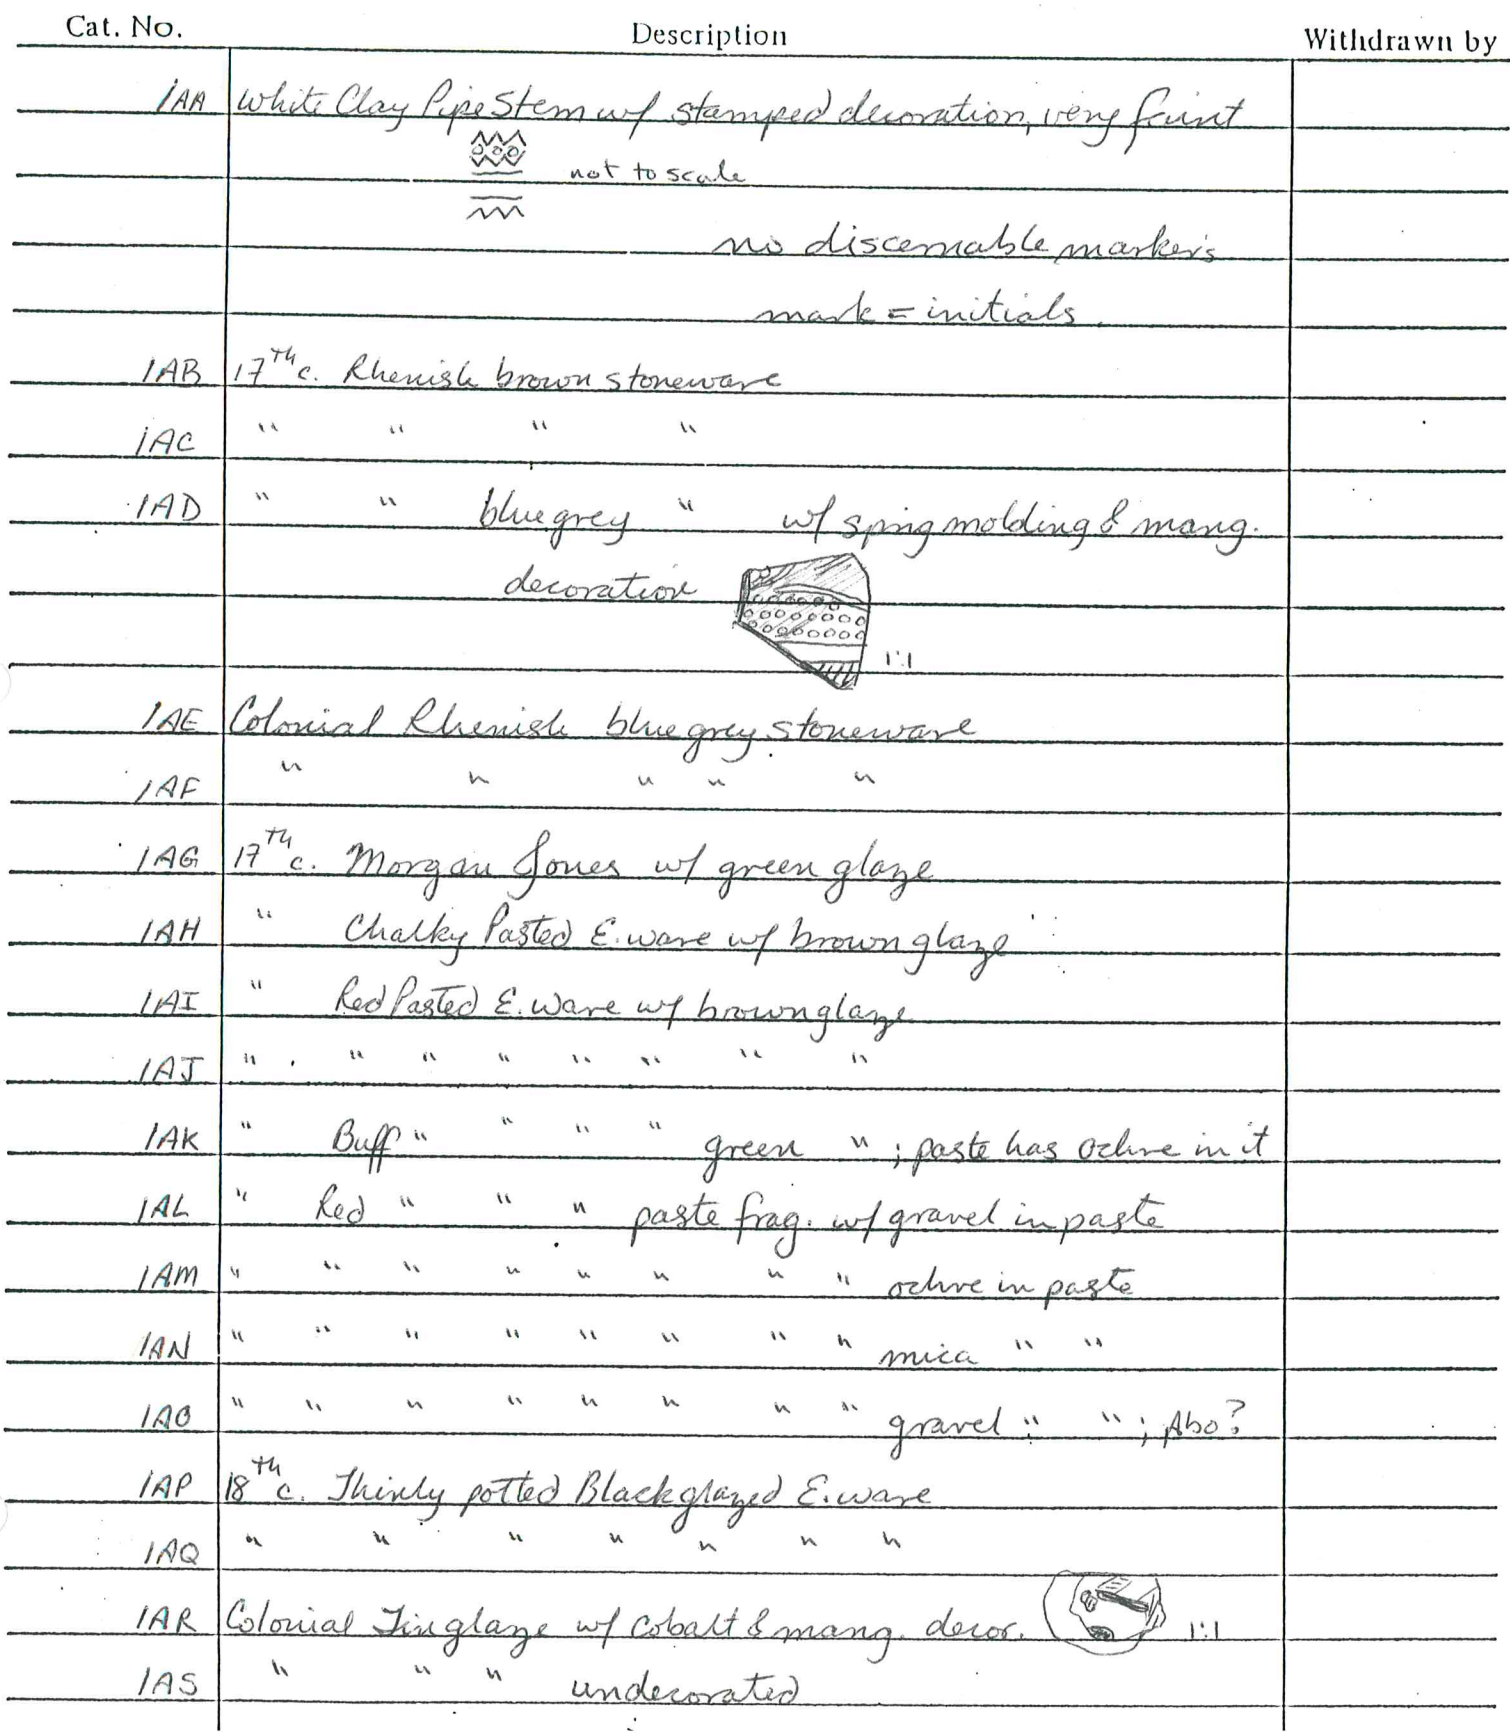 Cat. No. Description Withdrawn by
1AA White Clay Pipe Stem w/ stamped decoration, very faint
not to scale
no discernable marker's
mark = initials
1AB 17th c. Rhenish brown stoneware
1AC " " " "
1AD " " blue grey " w/ sprig molding & mang.
decoration
1:1
1AE Colonial Rhenish blue grey stoneware
1AF " " " " "
1AG 17th c. Morgan Jones w/ green glaze
1AH " Chalky Pasted E.ware w/ brown glaze
1AI " Red Pasted E.ware w/ brown glaze
1AJ " " " " " " " "
1AK " Buff " " " " green " ; paste has ochre in it
1AL " Red " " " paste frag. w/ gravel in paste
1AM " " " " " " " " ochre in paste
1AN " " " " " " " " mica " "
1AO " " " " " " " " gravel " " ; Abo?
1AP 18th c. Thinly potted Black glazed E.ware
1AQ " " " " " " "
1AR Colonial Tin glaze w/ cobalt & mang. decor. 1:1
1AS " " " undecorated